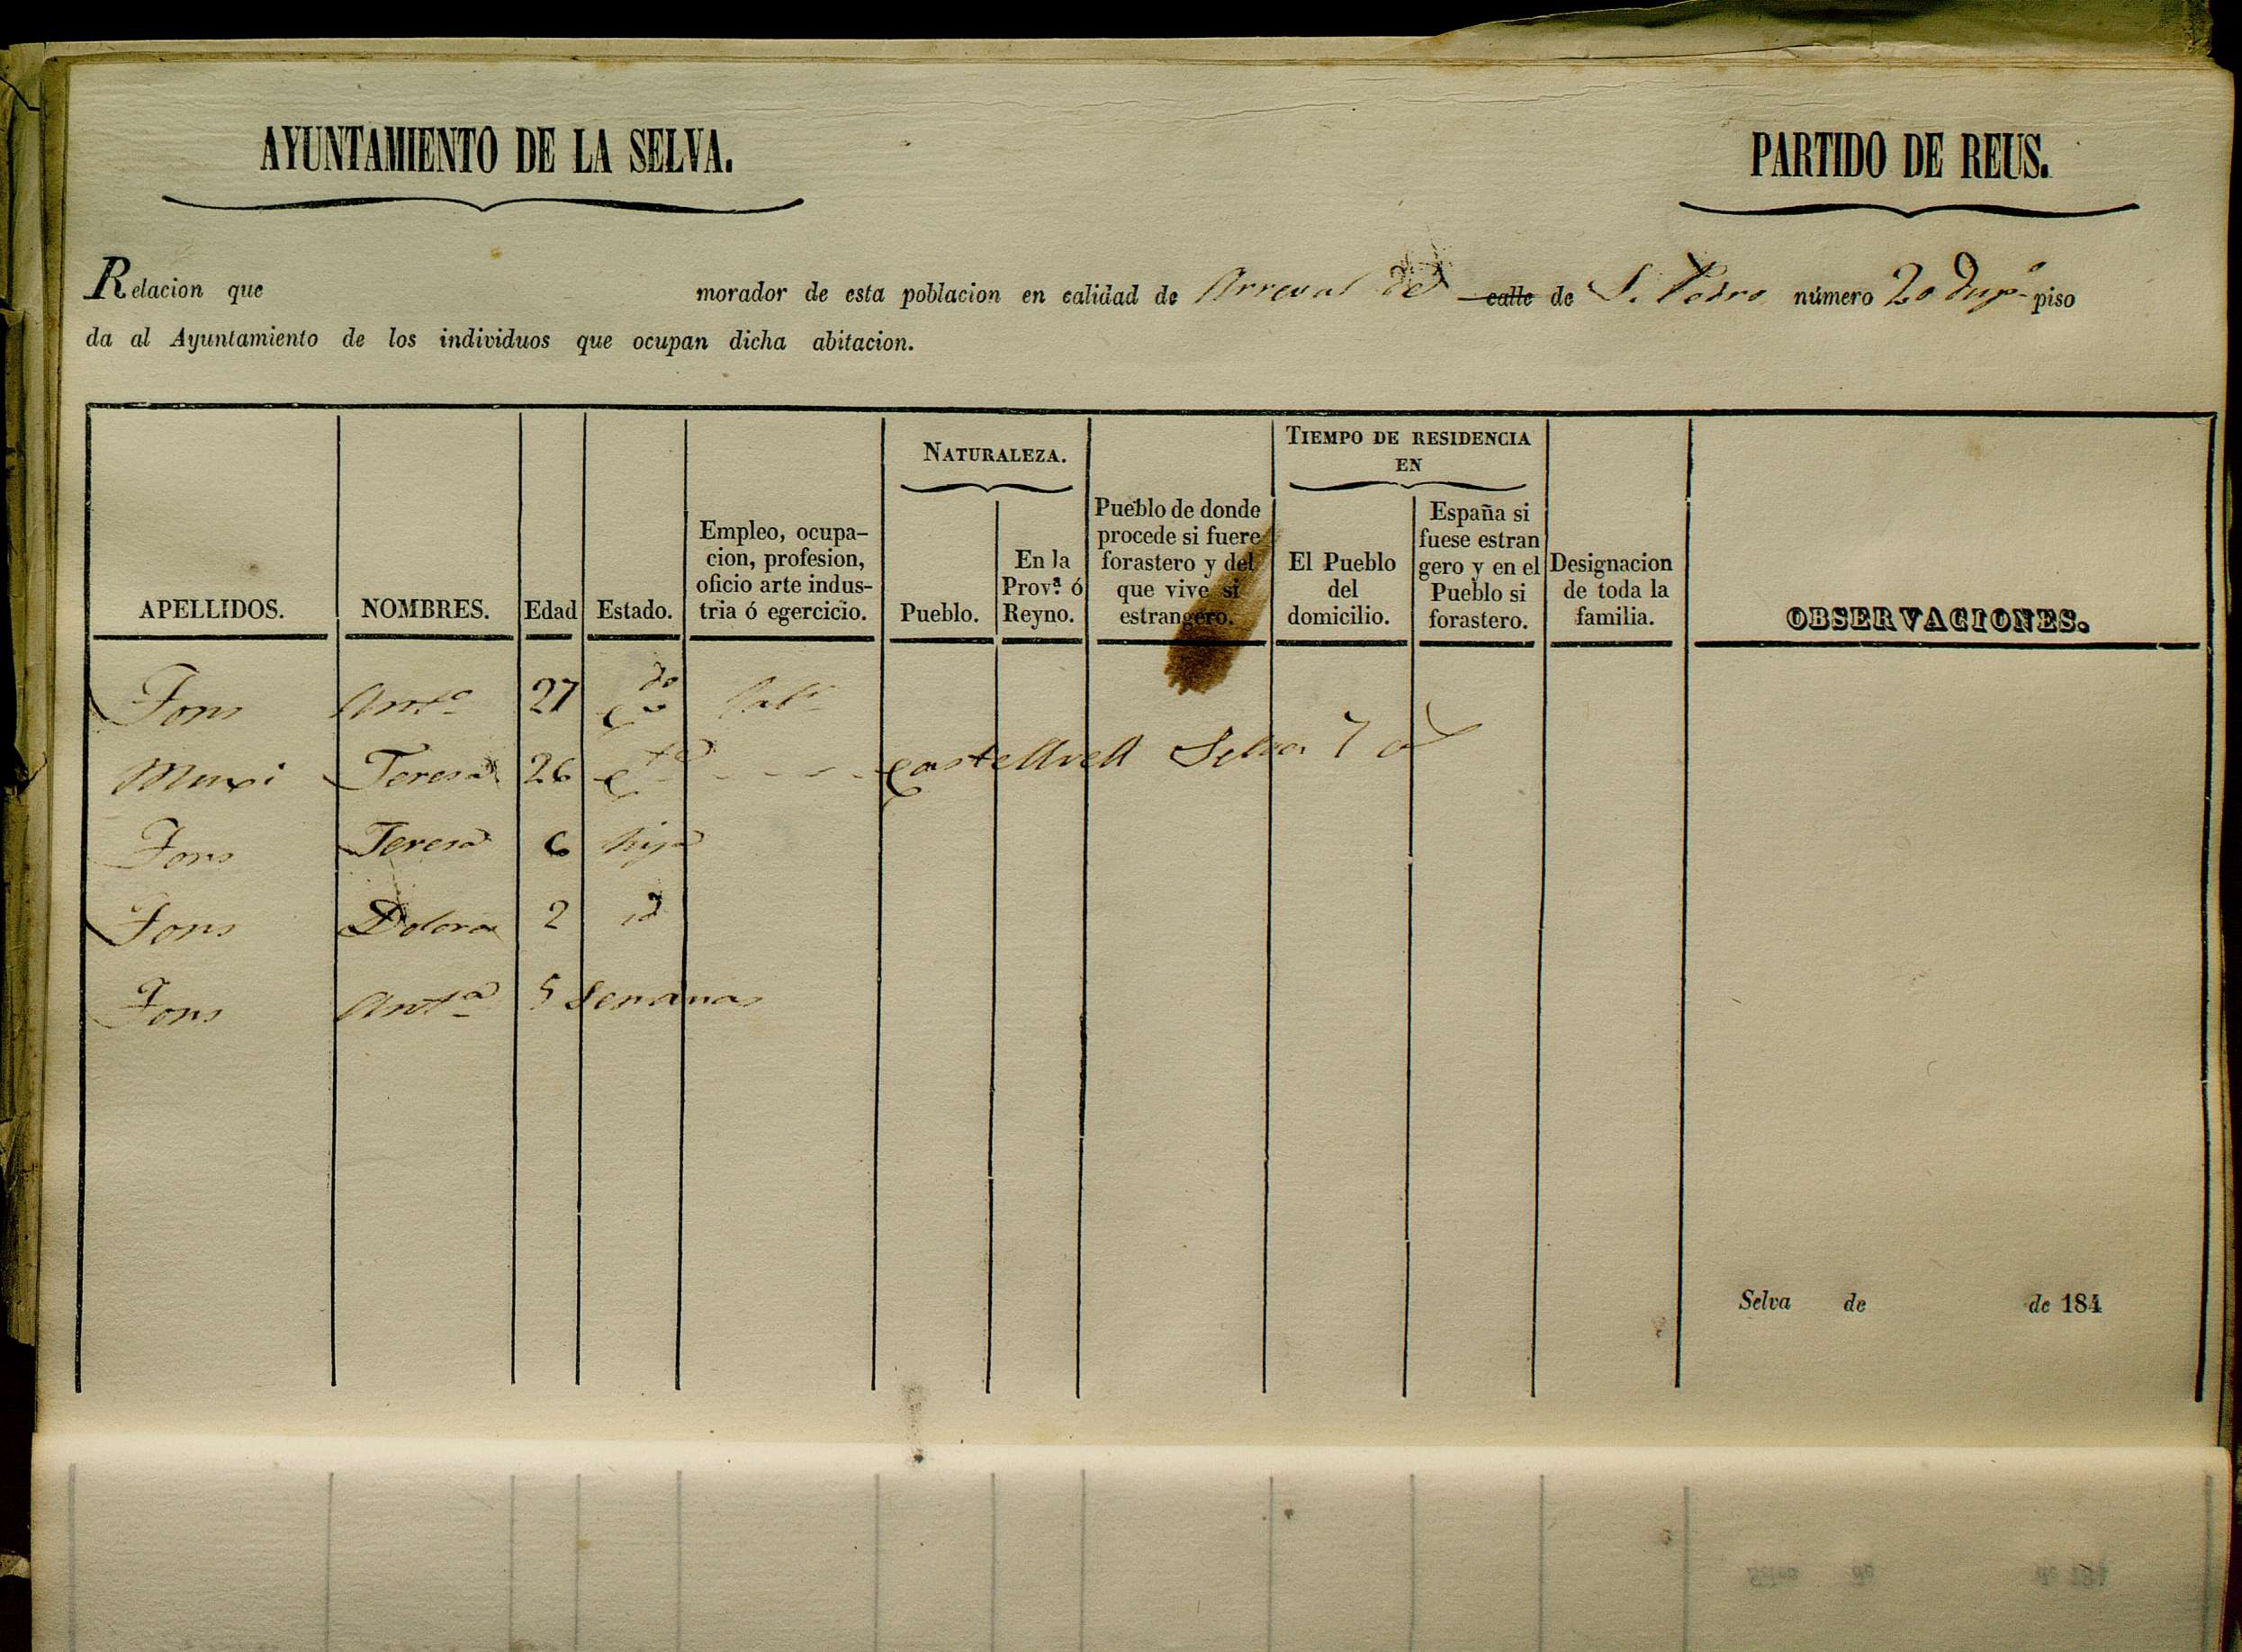 AYUNTAMIENTO DE LA SELVA.
PARTIDO DE REUS.
Relacion que morador de esta poblacion en calidad de Arreval de calle de S. Pedro número 20 Dupº piso
da al Ayuntamiento de los individuos que ocupan dicha abitacion.
APELLIDOS.
NOMBRES.
Edad
Estado.
Empleo, ocupa-
cion, profesion,
oficio arte indus-
tria ó egercicio.
NATURALEZA.
Pueblo.
En la
Prov.ª ó
Reyno.
Pueblo de donde
procede si fuere
forastero y del
que vive si
estrangero.
TIEMPO DE RESIDENCIA
EN
El Pueblo
del
domicilio.
España si
fuese estran
gero y en el
Pueblo si
forastero.
Designacion
de toda la
familia.
OBSERVACIONES.
Fons Antº 27 Cdo Labr
Teresa 26 Cta Castellvell Selva 7 a
Fons Teresa 6 hija
Fons Dolores 2 id
Fons Antª 5 Semanas
Selva de de 184